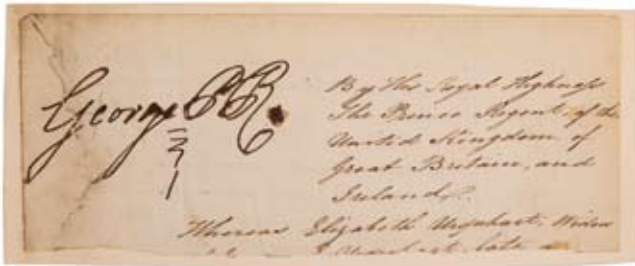 George PR.
By His Royal Highness
The Prince Regent, of the
United Kingdom, of
Great Britain, and
Ireland,
Whereas Elizabeth Urquhart, Widow
late